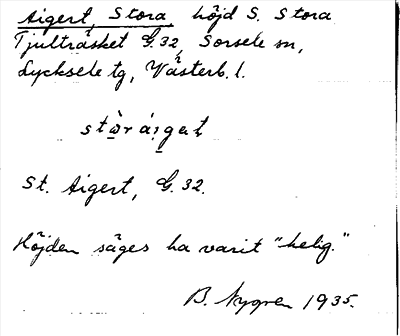 Aigert, Stora, höjd S. Stora
Tjulträsket G.32, Sorsele sn,
Lycksele tg, Västerb. l.
stòrái̯gert
St. Aigert, G.32.
Höjden säges ha varit "helig."
B. Nygren 1935.